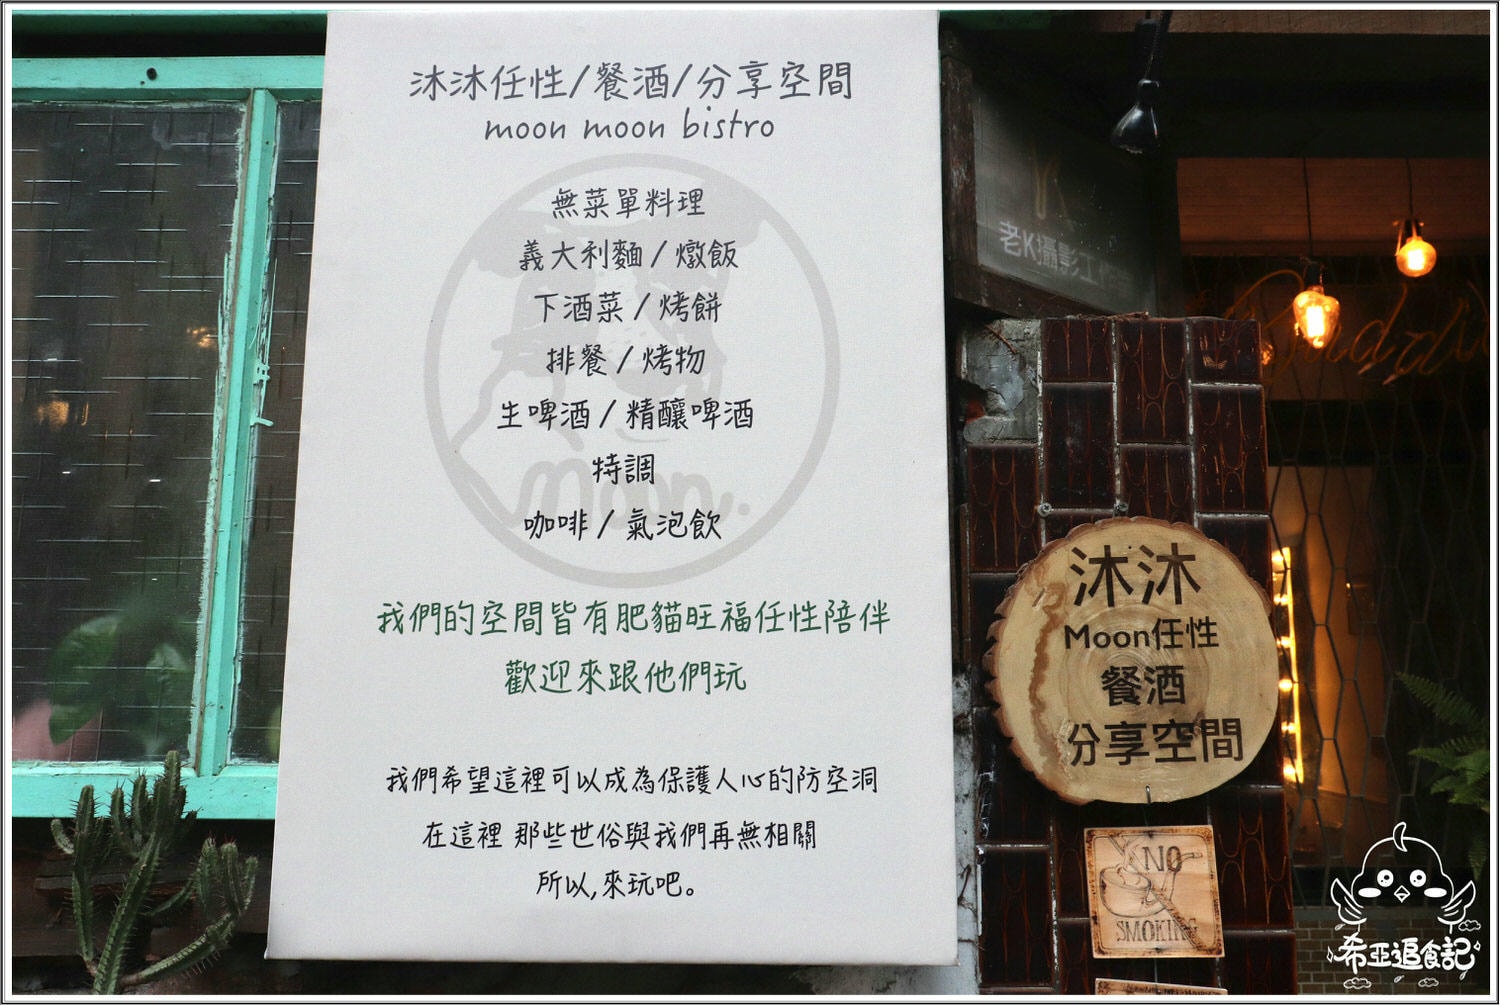 沐沐任性/餐酒/分享空間
moon moon bistro
無菜單料理
義大利麵 / 燉飯
下酒菜 / 烤餅
排餐 / 烤物
生啤酒 / 精釀啤酒
特調
咖啡 / 氣泡飲
moon.
我們的空間皆有肥貓旺福任性陪伴
歡迎來跟他們玩
我們希望這裡可以成為保護人心的防空洞
在這裡 那些世俗與我們再無相關
所以,來玩吧。
老K攝影工
沐沐
Moon任性
餐酒
分享空間
NO
SMOKING
希亞追食記